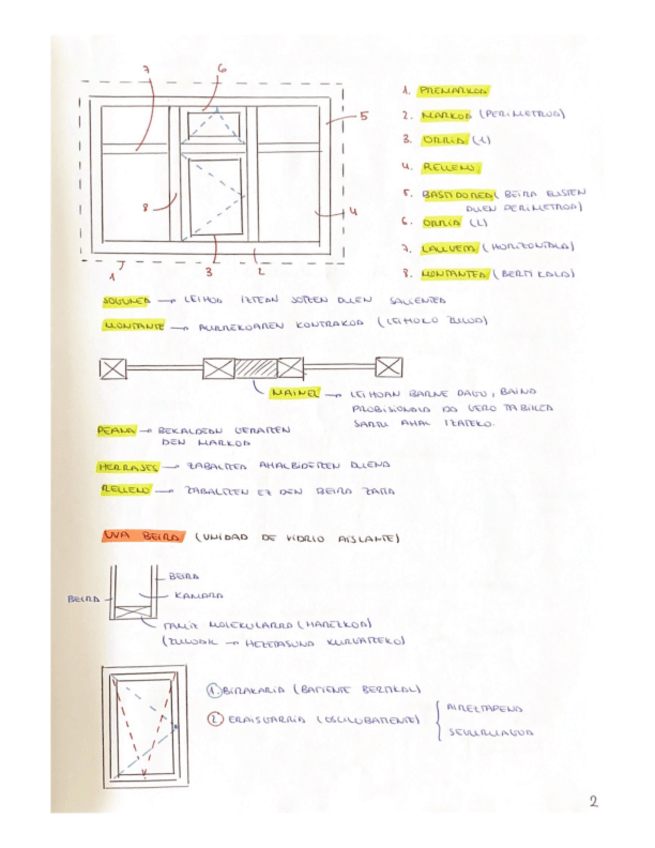 7 6
5
8
4
1 3 2
1. PREMARKOA
2. MARKOA (PERIMETROA)
3. ORRIA (1)
4. RELLENO
5. BASTIDOREA ( BEIRA EUSTEN
DUEN PERIMETROA)
6. ORRIA (2)
7. (HORIZONTALA)
8. MONTANTEA (BERTIKALA)
→ LEIHOA IXTEAN JOTZEN DUEN SALIENTEA
MONTANTE → AURREKOAREN KONTRAKOA (LEIHOKO ZULOA)
MAINEL → LEIHOAN BARNE DAGO, BAINO
PROBISIONALA DA GERO TABIKEA
SARTU AHAL IZATEKO.
PEANA → BEKALDEAN GERATZEN
DEN MARKOA
HERRAJES → ZABALTZEA AHALBIDETZEN DUENA
RELLENO → ZABALTZEN EZ DEN BEIRA ZATIA
UVA BEIRA (UNIDAD DE VIDRIO AISLANTE)
BEIRA
BEIRA
KAMARA
TAMIZ MOLEKULARRA (HAREZKOA)
(ZULOAK → HEZETASUNA KONTRATZEKO)
1. BIRAKARIA (BATIENTE BERTIKAL)
2 ERAISGARRIA (OSCILOBATIENTE)
AIREZTAPENA
SEGURTASUNA
2